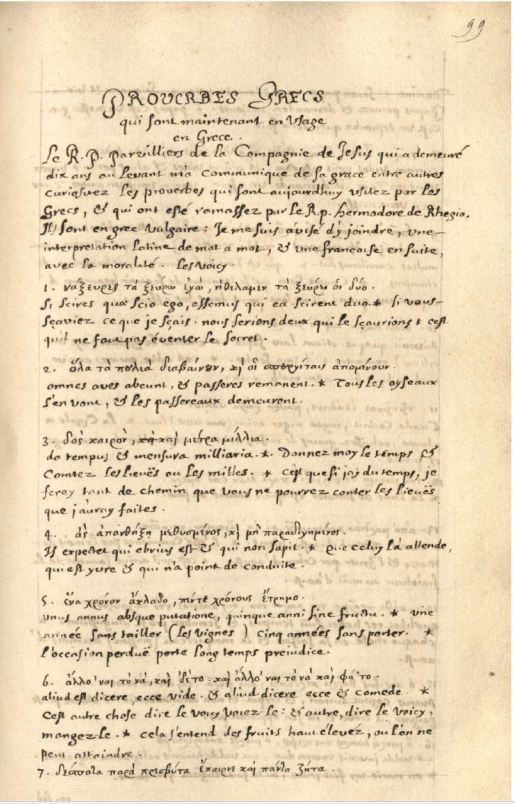 99
PROVERBES GRECS
qui sont maintenant en Vsage
en Grece.
Le R. P. Parvilliers de la Compagnie de Jesus qui a demeuré
dix ans au Levant m'a Communiqué de sa grace entre autres
curiositez les proverbes qui sont aujourdhuy usitez par les
Grecs, & qui ont esté ramassez par le R. p. hermodore de Rhegio.
Ils sont en grec Vulgaire: Je me suis avisé d'y joindre, une
interpretation latine de mot a mot, & une francoise en suite,
avec la moralité. Les voicy
1. νὰ ξευρες τὰ ξευρω ἐγὼ, ἠθέλαμεν τὰ ξευρει οἱ δύο.
Si scires quae scio ego, essemus qui ea scirent duo. * Si vous
sçaviez ce que je sçais. nous serions deux qui le sçaurions * c'est
qu'il ne faut pas éventer le secret.
2. ὅλα τὰ πουλιὰ διαβαίνουν, κὶ οἱ σπεργίται ἀπομένουν.
omnes aves abeunt, & passeres remanent. * Tous les oyseaux
s'en vont, & les passereaux demeurent.
3. δος καιρον, καὶ μέτρα μίλλια.
da tempus & mensura milliaria. * Donnez moy le temps &
Comtez les lieuës ou les milles. * C'est que si j'ay du temps, je
feray tant de chemin que vous ne pourrez conter les lieuës
que j'auray faites.
4. ἂς ἀπαντήξη μεθυσμένος, κὶ μὴ παραλογημένος.
Is expectet qui ebrius est & qui non sapit. * que celuy la attende,
qui est yvre & qui n'a point de conduite.
5. ἕνα χρόνον ἄκλαδο, πέντε χρόνους ἔτρημο.
unus annus absque putatione, quinque anni sine fructu. * Une
année sans tailler (les vignes) cinq années sans porter. *
l'occasion perduë porte long temps prejudice.
6. ἄλλο ναι το νά, καὶ ἰδέ το. καὶ ἄλλο ναι το νὰ καὶ φά το.
aliud est dicere ecce vide. & aliud dicere ecce & comede. *
C'est autre chose dire le voicy voiez le: & autre, dire le voicy,
mangez le. * cela s'entend des fruits haut élevez, ou l'on ne
peut atteindre.
7. παρὰ καὶ πάντα ζήτα.